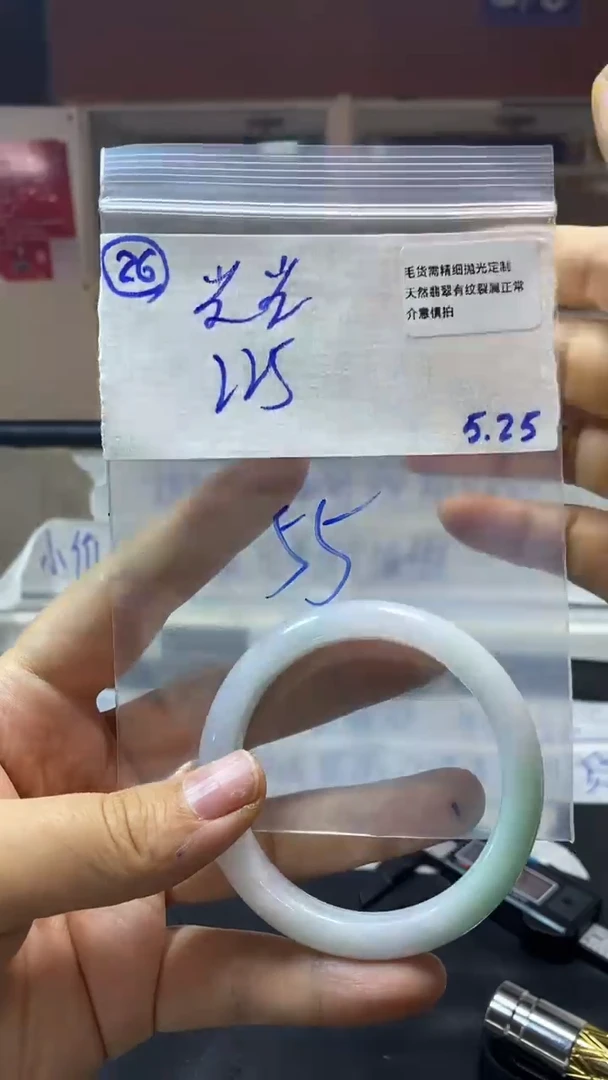 26
光光
115
毛货需精细抛光定制
天然翡翠有纹裂属正常
介意慎拍
5.25
55
小价